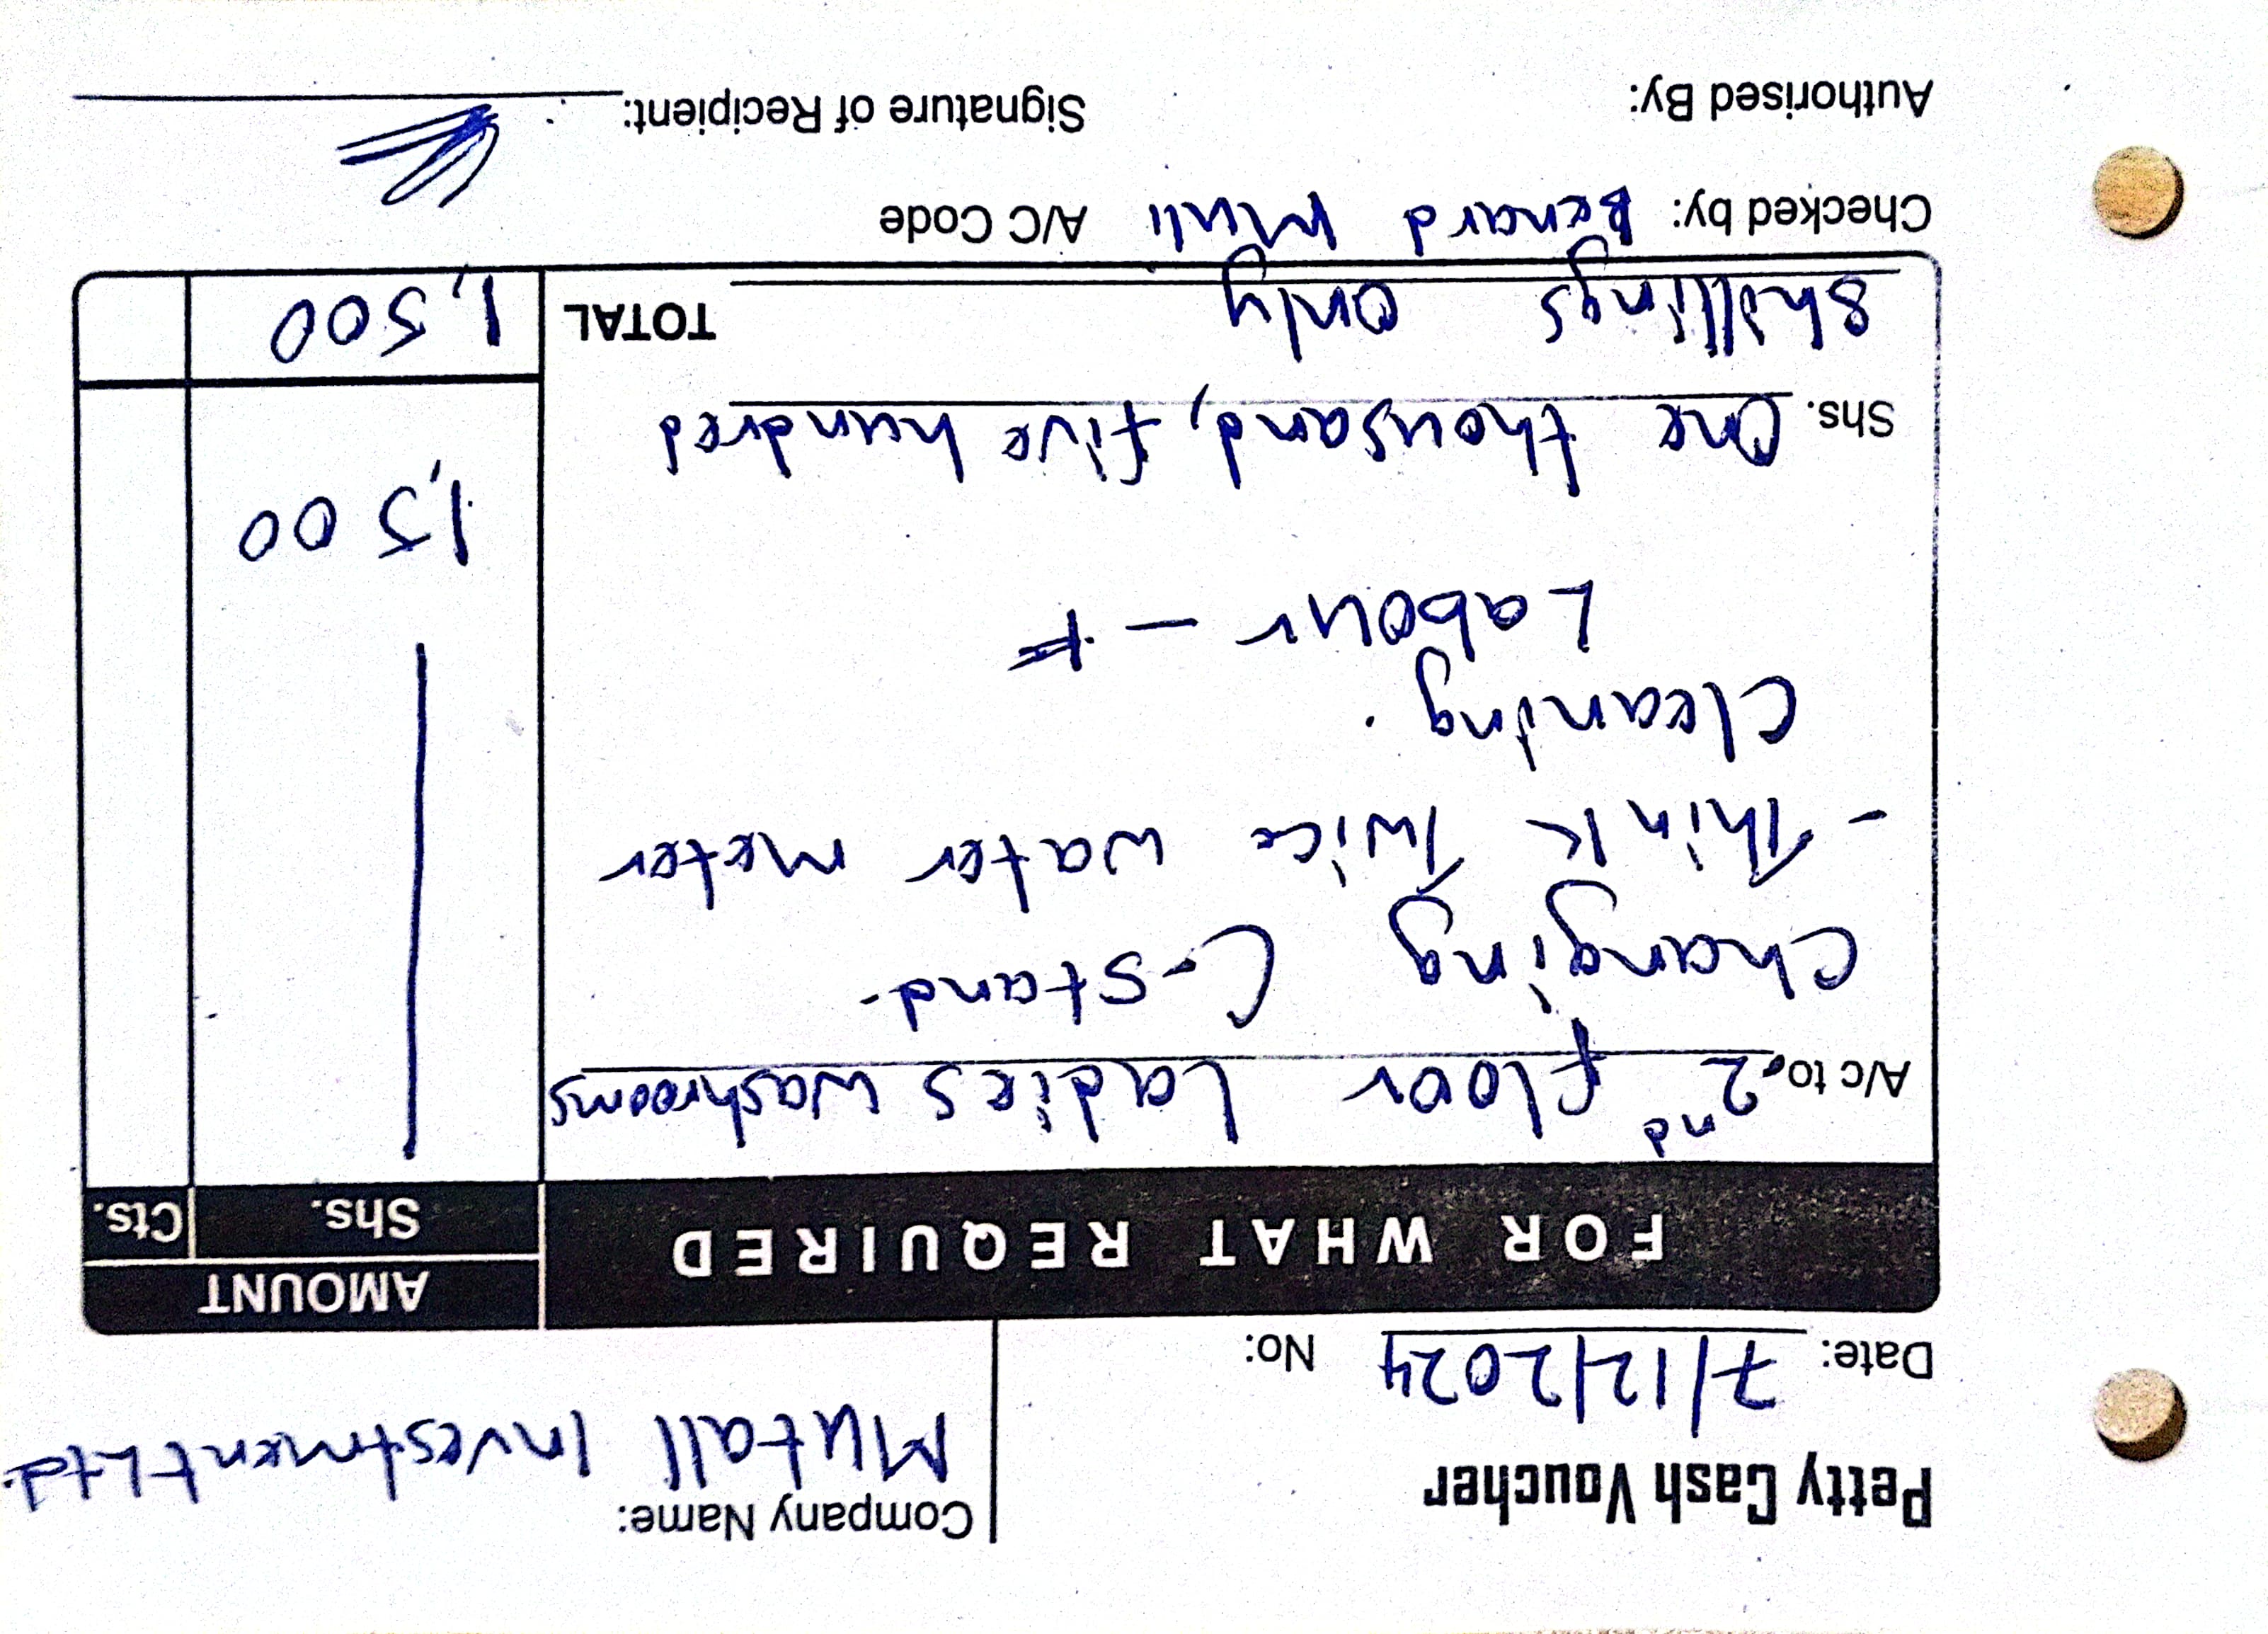 Petty Cash Voucher
Company Name:
Mutall Investment Ltd.
Date: 7/12/2024 No:
FOR WHAT REQUIRED
AMOUNT
Shs. Cts.
A/c to. 2nd floor Ladies washrooms
changing C-stand.
- Think Twice water meter
cleaning.
Labour -
1,500
Shs. One thousand, five hundred
Shillings Only TOTAL 1,500
Checked by: Benard A/C Code
Authorised By: Signature of Recipient: